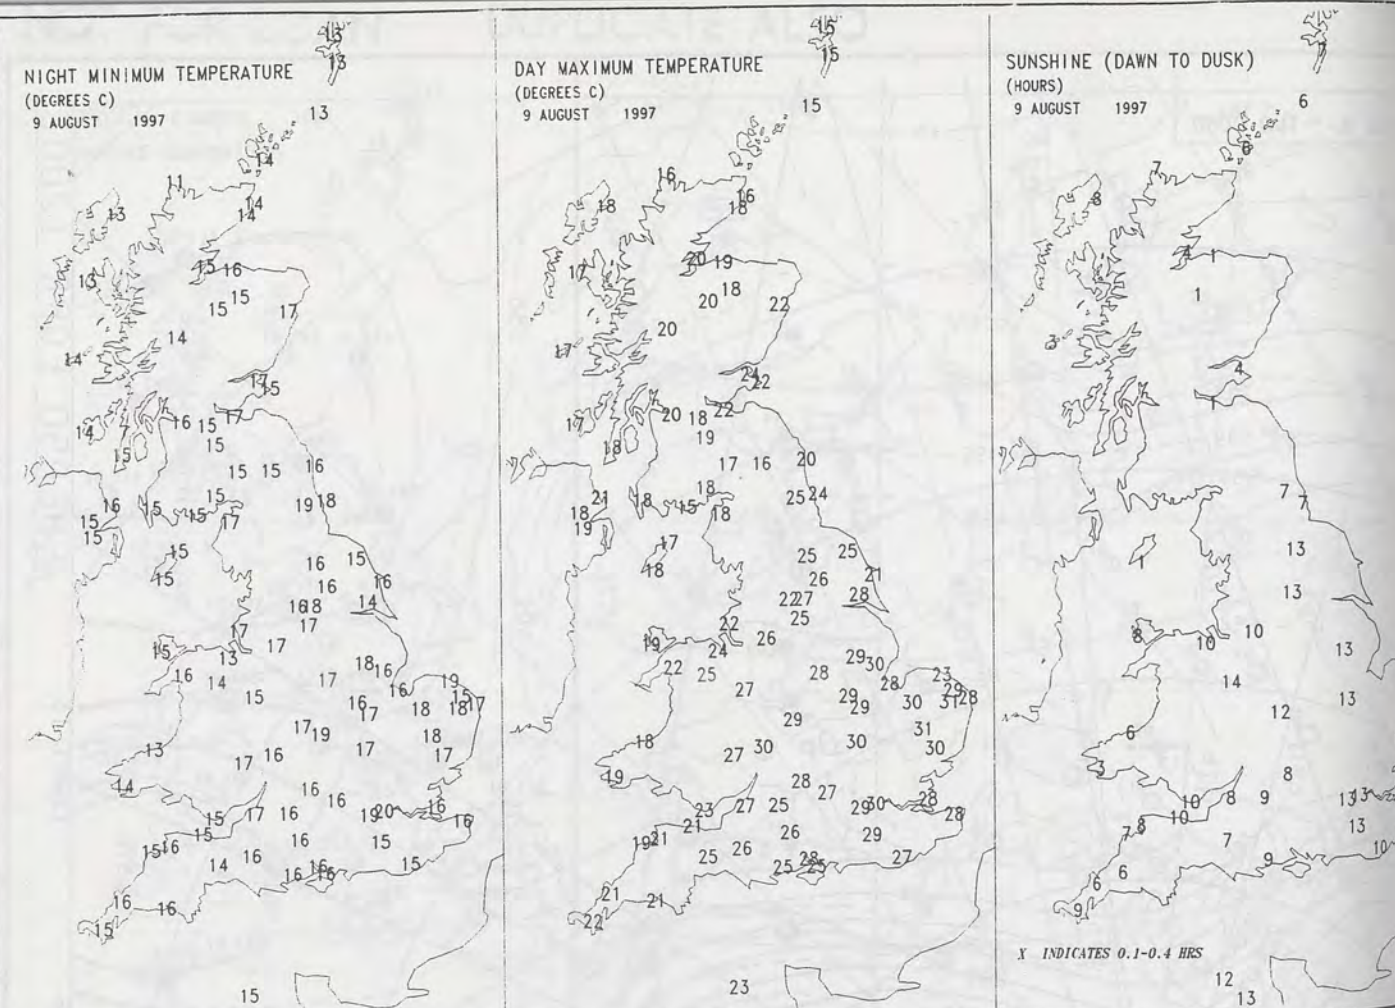 NIGHT MINIMUM TEMPERATURE
(DEGREES C)
9 AUGUST 1997
13
13
13
14
11
14
14
13
15 16
13
15 15
17
14
14
17
15
16 15 17
14
15
15
15 15 16
16 15 15 15 17 19 18
15
15
15
15
16 15
16
16 18 16 14
17 17
15 13 17
16 14 17 18 16
15 16 19
16 17 18 15 18 17
17 19
13 17 16 17 18 17
14
16 16
15 17 16 19 20 16 16
15
15 16 16 15
14 16 15
16 16 16
16 16
15
15
DAY MAXIMUM TEMPERATURE
(DEGREES C)
9 AUGUST 1997
15
15
15
16
16
18 18
17 20 19
18
20 22
20
17
24 22
17 20 18 22
19
18
17 16 20
21 18 18 15 18 25 24
18
19
17
18
25 25
26 21
22 27 28
25
22
19 24 26
22 25 28 29 30
27 28 23
29 29 30 29 31 28
29
18 27 30 30 31 30
19
28 27
23 27 25 29 30 28 28
21
19 21 26 29
25 26 25 28 25 27
21
22 21
23
SUNSHINE (DAWN TO DUSK)
(HOURS)
9 AUGUST 1997
7
6
6
7
8
4 1
1
3
4
1
7 7
1 13
13
8 10 10 13
14 13
6 12
3 8
10 8 9 13 13
10
7 8 7 13
9 10
6 6
9
X INDICATES 0.1-0.4 HRS
12
13